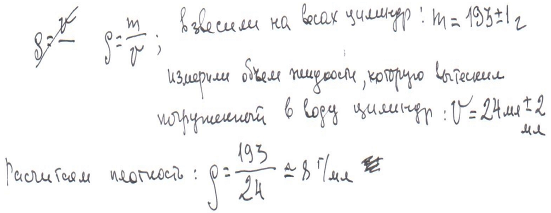 ρ = m/v ; Взвесили на весах цилиндр : m = 193 ± 1 г
измерили объем жидкости, которую вытеснил
погруженный в воду цилиндр : V = 24 мл ± 2 мл
Расчитаем плотность : ρ = 193/24 ≃ 8 г/мл